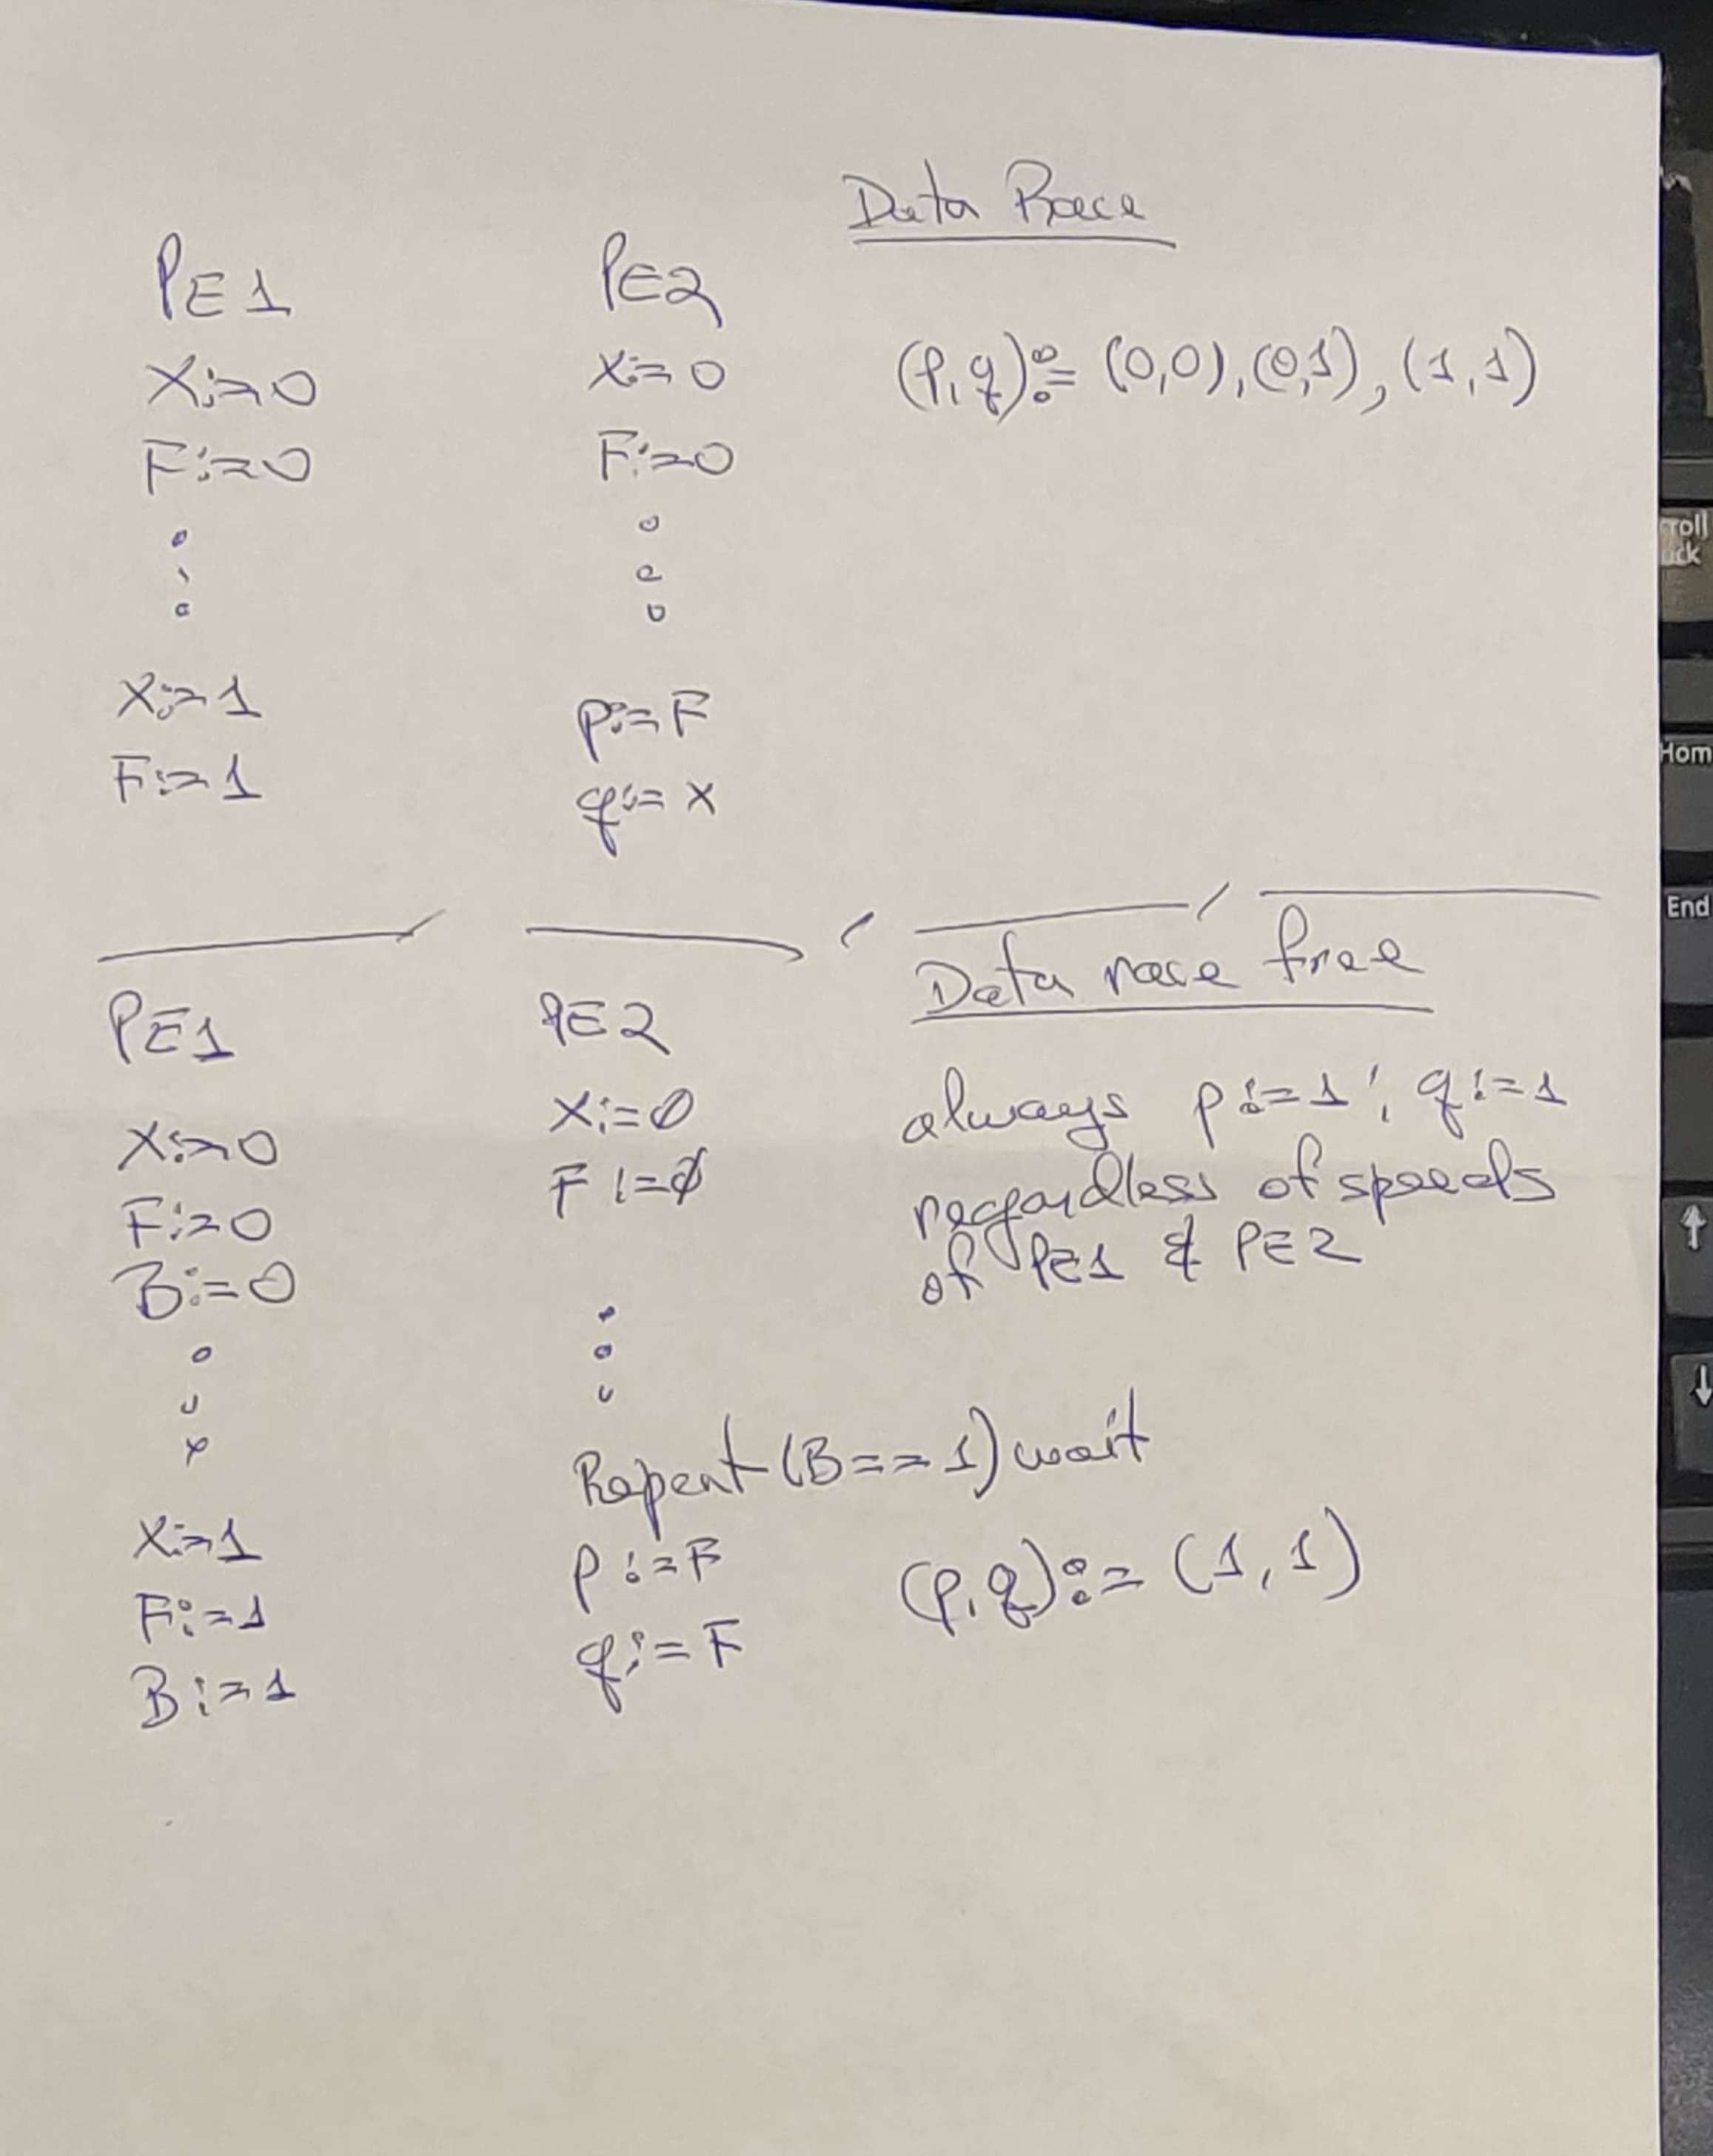 Data Race
PE1 PE2
X:=0 X:=0 (p,q):= (0,0),(0,1),(1,1)
F:=0 F:=0
X:=1 p:=F
F:=1 q:=X
Data race free
PE1 PE2
X:=0 X:=0 always p:=1; q:=1
F:=0 F:=0 regardless of speeds
B:=0 of PE1 & PE2
Repeat (B==1) wait
X:=1 p:=F (p,q):= (1,1)
F:=1 q:=F
B:=1
roll
Hom
End